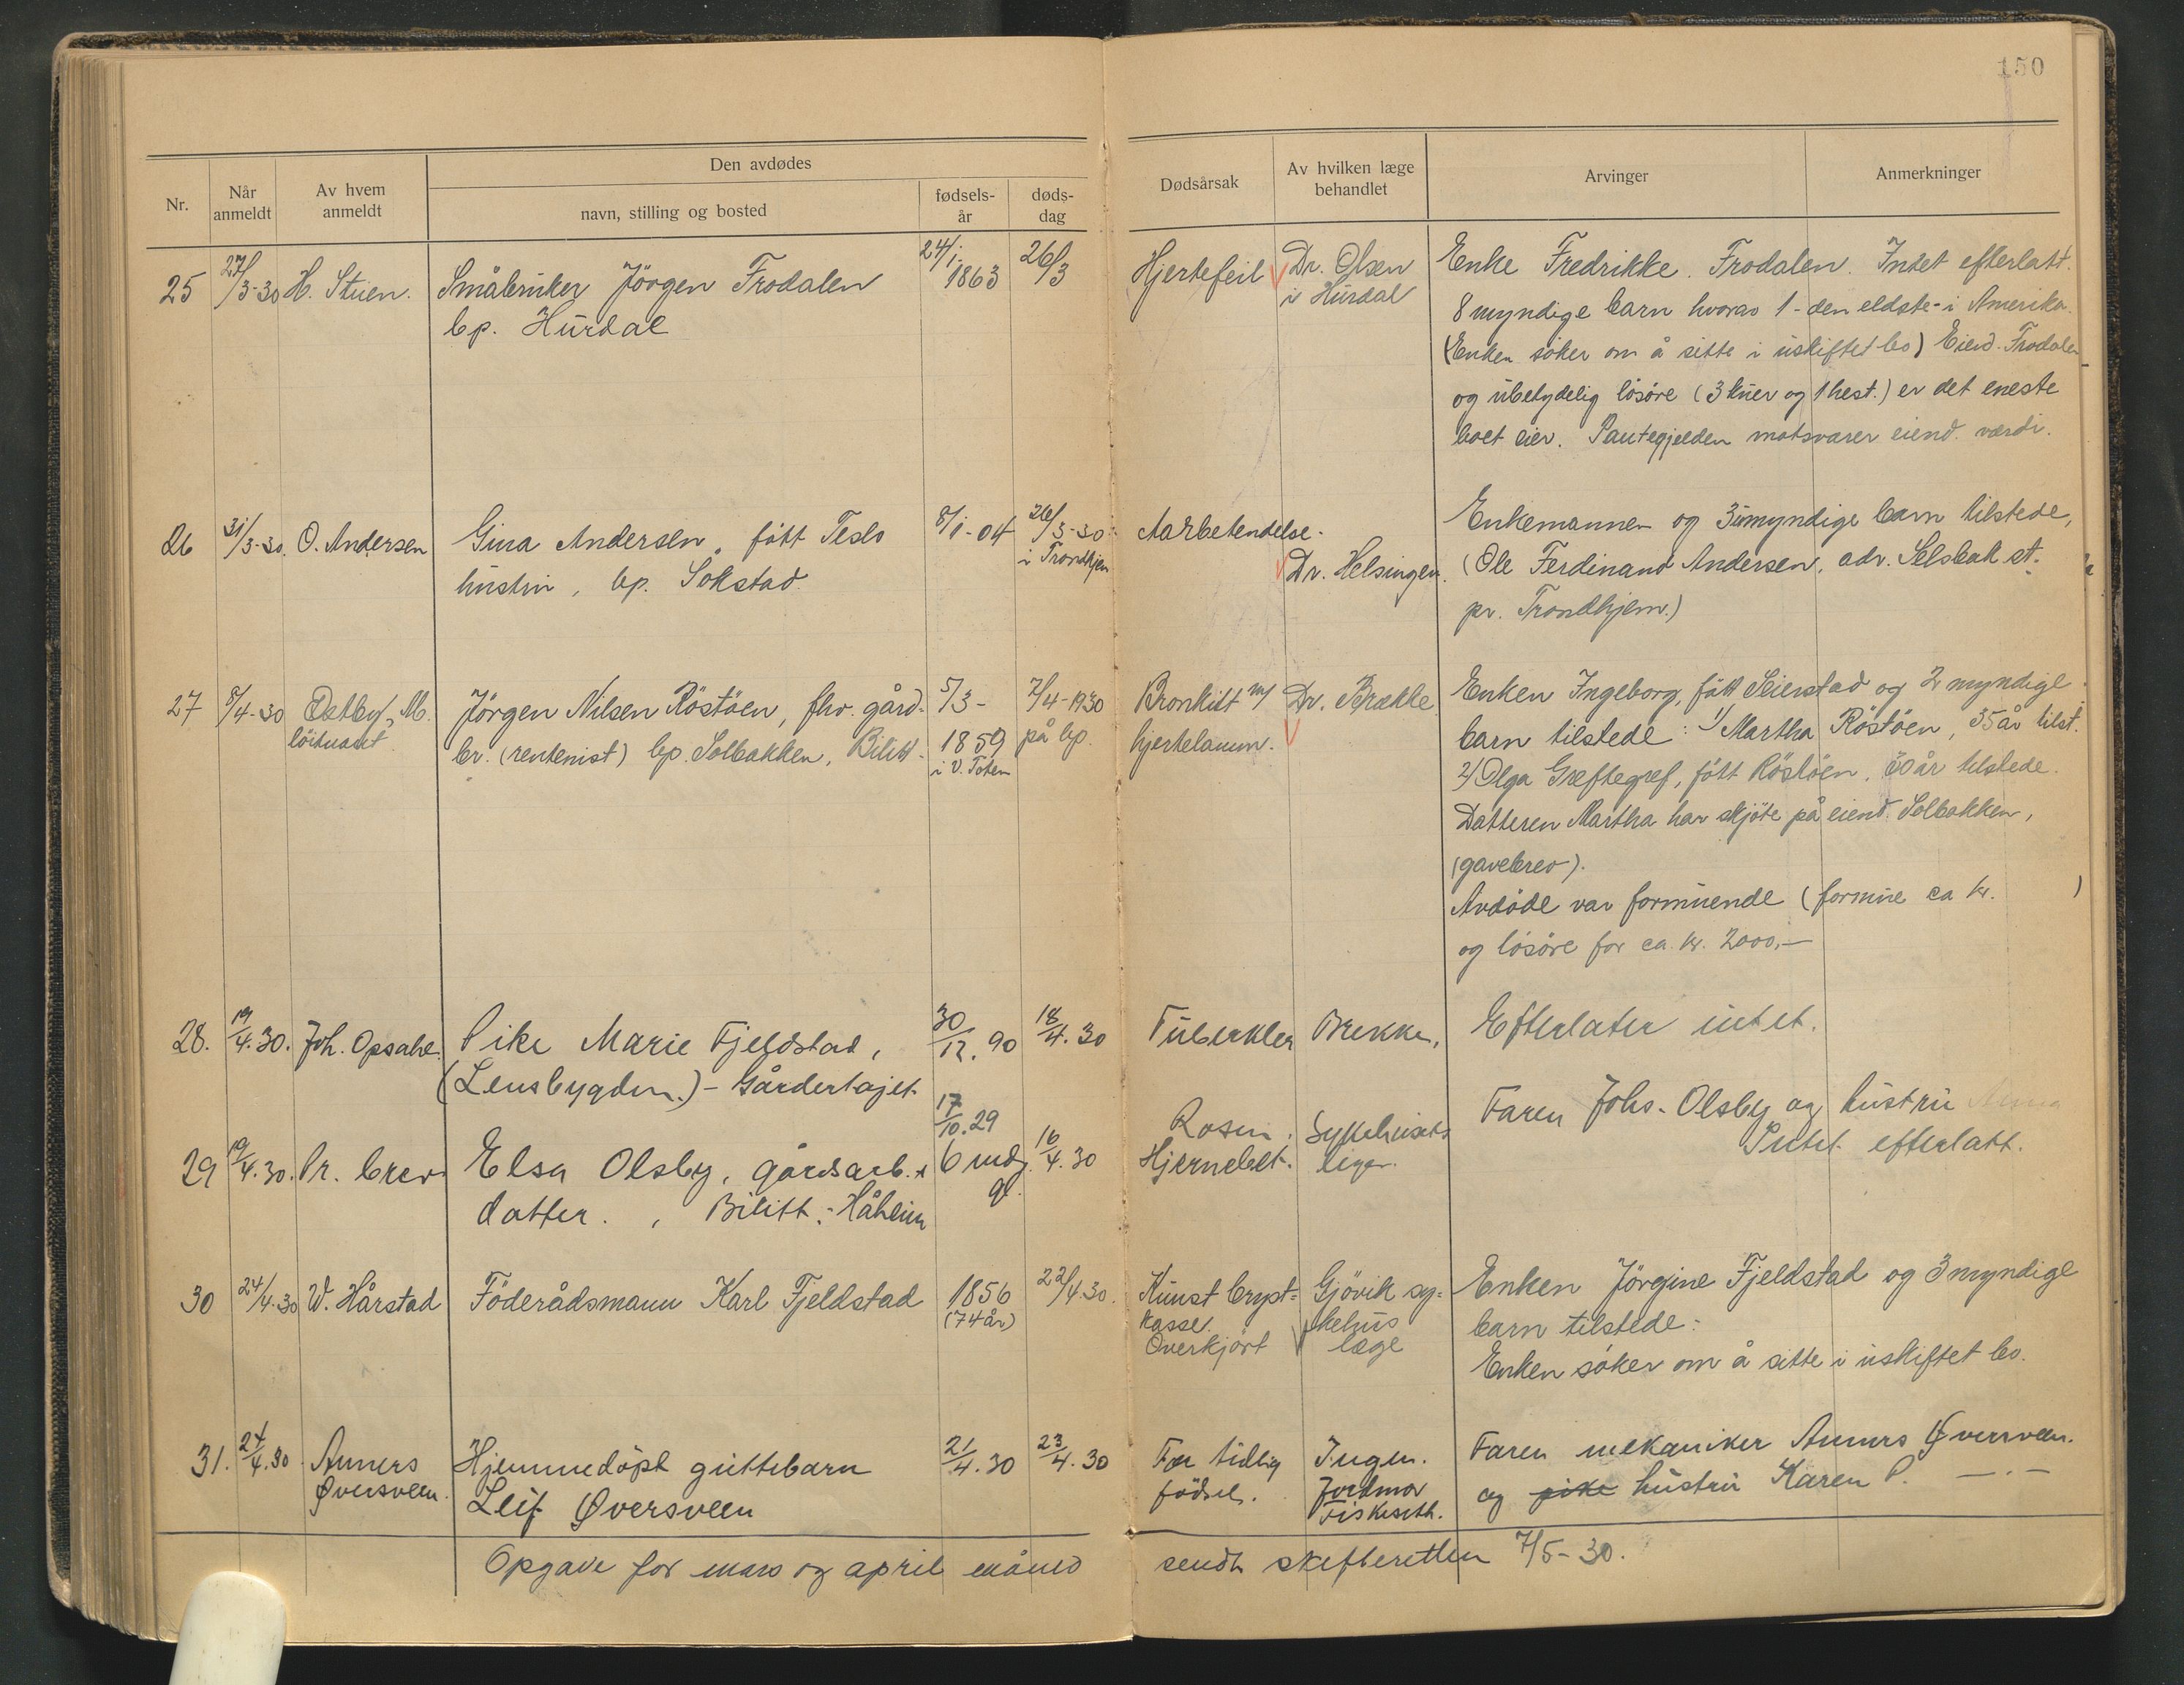 150
Nr.
Når anmeldt
Av hvem anmeldt
Den avdødes
navn, stilling og bosted
fødsels-år
døds-dag
Dødsårsak
Av hvilken læge behandlet
Arvinger
Anmerkninger
25 27/3-30 H. Stuen. Småbruker Jörgen Frodalen 24/1- 1863 26/3 Hjertefeil Dr. Olsen Enke Fredrikke Frodalen. Intet efterlatt.
bp. Hurdal i Hurdal 8 myndige barn hvorav 1 - den eldste - i Amerika.
(Enken söker om å sitte i uskiftet bo) Eiend. Frodalen
og ubetydelig lösöre (3 kuer og 1 hest.) er det eneste
boet eier. Pantegjelden motsvarer eiend. værdi.
26 31/3-30. O. Andersen Gina Andersen, född Teslo 8/1-04 26/3-30 Aarbetendelse. Enkemannen og 3 umyndige barn tilstede,
hustru, bp. Sokstad i Trondhjem Dr. Helsingen. (Ole Ferdinand Andersen, adr. Selsbak st.
pr. Trondhjem.)
27 8/4-30 Östby, M. Jörgen Nilsen Röstöen, fhv. gård- 5/3- 7/4-1930 Bronkitt m/ Dr. Brække Enken Ingeborg, fött Seierstad og 2 myndige
löitnant br. (rentenist) bp. Solbakken, Bilitt. 1859 på bp. hjertelamm. barn tilstede: 1/ Martha Röstöen, 35 år tilst.
i V. Toten 2/ Olga Græftegref, fött Röstöen, 30 år tilstede.
Datteren Martha har skjöte på eiend. Solbakken,
(gavebrev).
Avdöde var formuende (formue ca kr. )
og lösöre for ca. kr. 2000,-
28. 19/4.30. Joh. Opsahl. Pike Marie Fjeldstad, 30/12.90 18/4.30 Tuberkler Brekke, Efterlater intet.
(Lensbygden.) - Gårdertajet.
17/10.29 Rosen. Sykehusets Faren Johs. Olsby og hustru
29 19/4.30. Pr. brev Elsa Olsby, gårdsarb. 6 mdr. 16/4.30 Hjernebet. leger. Intet efterlatt.
datter. , Bilitt. - Håheim gl.
30 24/4.30 W. Hårstad Föderådsmann Karl Fjeldstad 1856 22/4.30. Knust bryst- Gjövik sy- Enken Jörgine Fjeldstad og 3 myndige
(74 år) kasse. kehus barn tilstede:
Overkjört læge Enken söker om å sitte i uskiftet bo.
31. 24/4.30 Anners Hjemmedöpt guttebarn 21/4.30 23/4.30 For tidlig Ingen. Faren mekaniker Anners Øversveen.
Øversveen. Leif Øversveen födsel. Jordmor og pike hustru Karen P. -.-
Fiskeseth.
Opgave for mars og april måned sendt skifteretten 7/5-30.